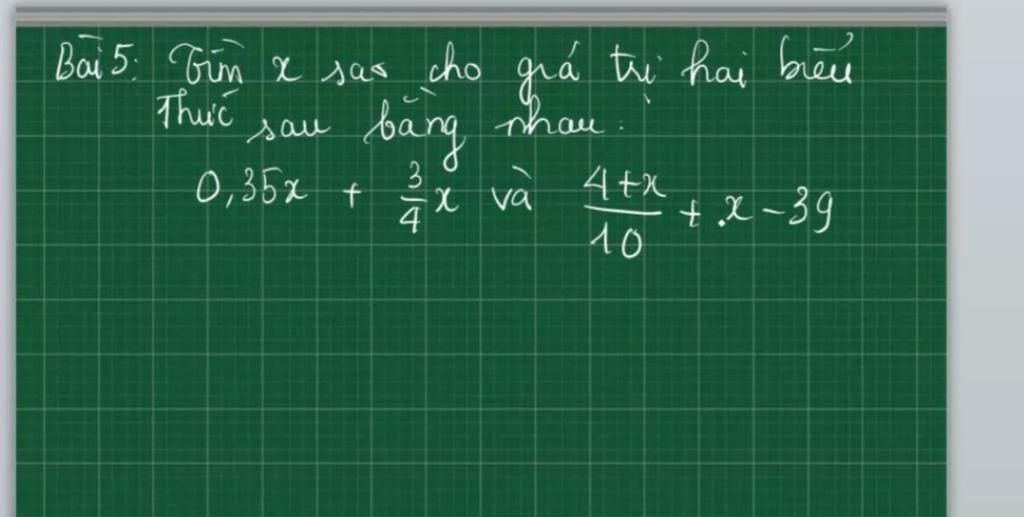 Bài 5: Tìm x sao cho giá trị hai biểu
Thức sau bằng nhau:
0,35x + \frac{3}{4}x và \frac{4+x}{10} + x - 39